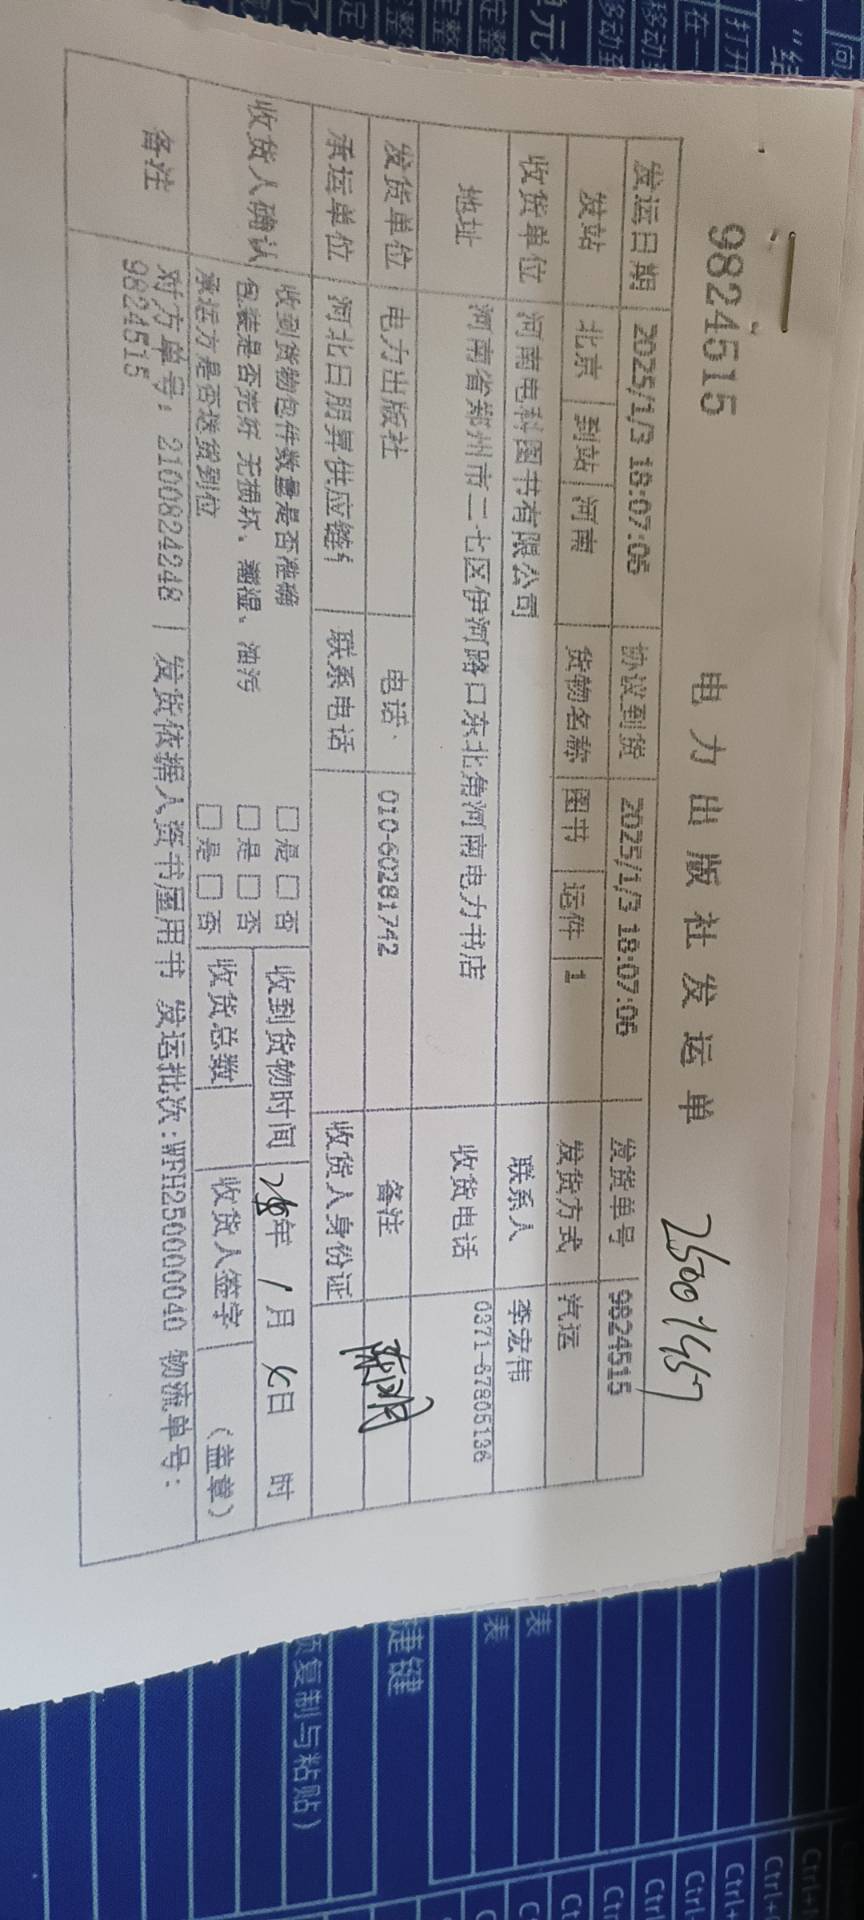 9824515 电力出版社发运单 25001457
发运日期 2025/1/3 18:07:06 协议到货 2025/1/3 18:07:06 发货单号 9824515
发站 北京 到站 河南 货物名称 图书 运件 1 发货方式 汽运
收货单位 河南电科图书有限公司 联系人 李宏伟
地址 河南省郑州市二七区伊河路口东北角河南电力书店 收货电话 0371-67905136
发货单位 电力出版社 电话: 010-60281742 备注
承运单位 河北日朋昇供应链 联系电话 收货人身份证
收货人确认 收到货物包件数量是否准确 □是□否 收到货物时间 年 1月 日 时
包装是否完好 无损坏、潮湿、油污 □是□否
承运方是否送货到位 □是□否 收货总数 收货人签字 (盖章)
备注 对方单号: 2100824248 | 发货依据人资书屋用书 发运批次:WFH250000040 物流单号:
9824515
捷键
复制与粘贴)
表
表